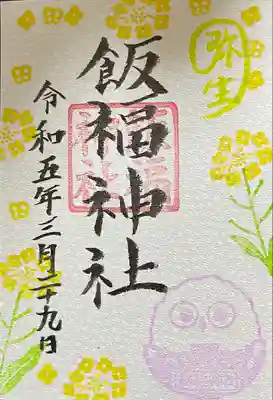 弥生
飯福神社
令和五年三月二十九日